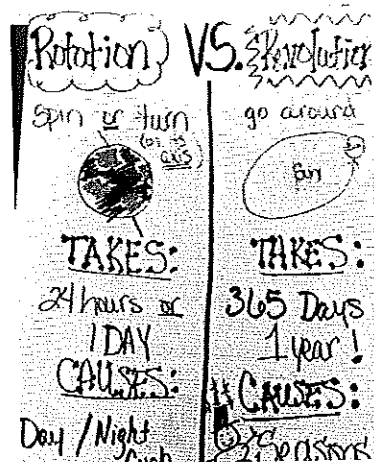 Rotation VS. Revolution
Spin or turn
(on its
axis)
TAKES:
24 hours or
1 DAY
CAUSES:
Day / Night
go around
Sun
TAKES:
365 Days
1 year!
CAUSES:
Seasons